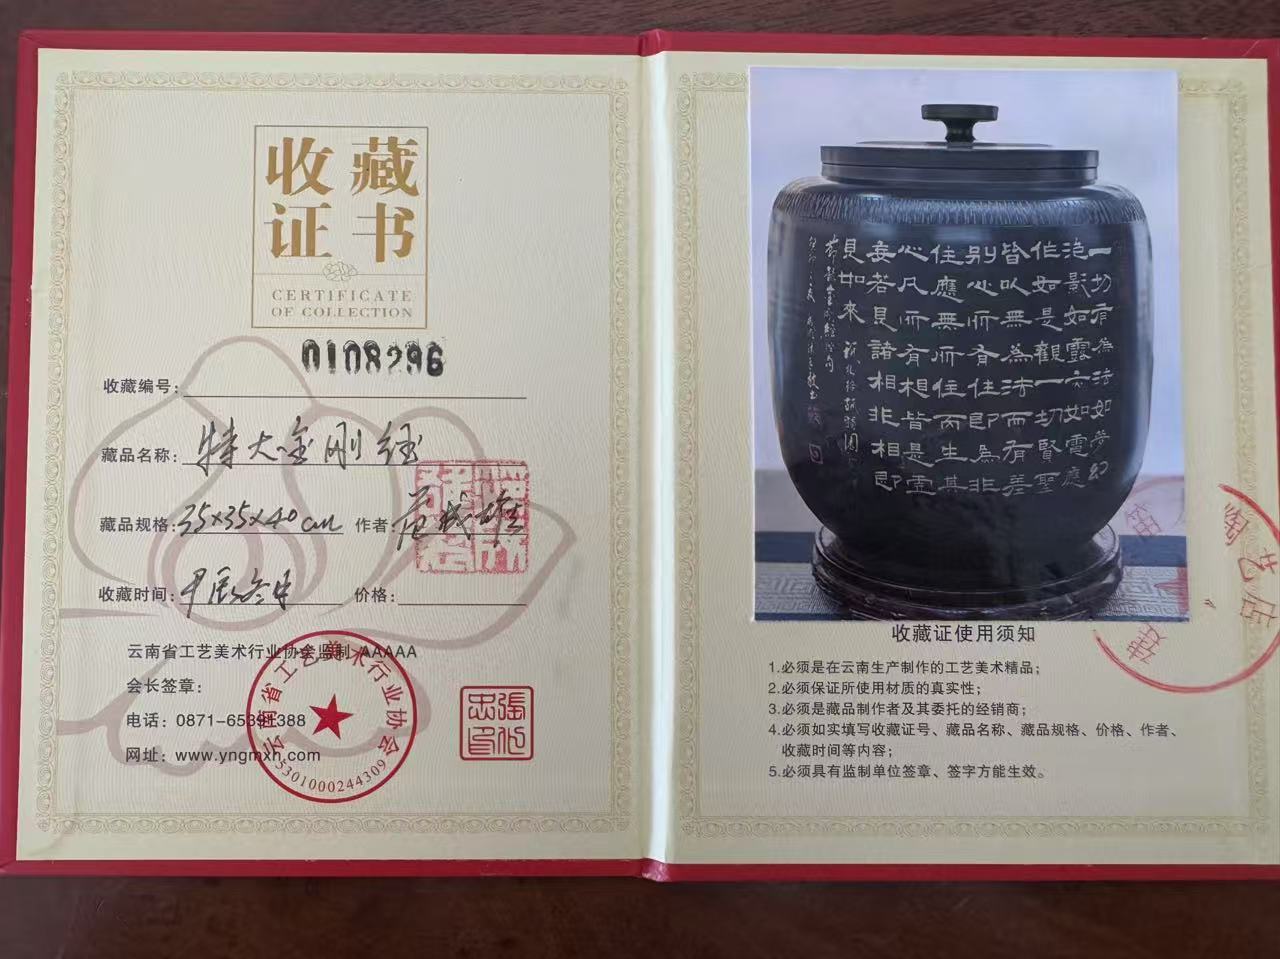 收藏
证书
CERTIFICATE
OF COLLECTION
0108296
收藏编号：
藏品名称：特大金刚经
藏品规格：35×35×40cm 作者：
收藏时间：甲辰冬月 价格：
云南省工艺美术行业协会监制 AAAAA
会长签章：
电话：0871-65391388
网址：www.yngmxh.com
云南省工艺美术行业协会
5301000244309
張
忠印
一切有為法如夢幻
泡影如露亦如電應
作如是觀一切賢聖
皆以無為法而有差
別心所有住即為非
住應無所住而生其
心凡所有相皆是虛
妄若見諸相非相即
見如來
陶艺店
收藏证使用须知
1.必须是在云南生产制作的工艺美术精品；
2.必须保证所使用材质的真实性；
3.必须是藏品制作者及其委托的经销商；
4.必须如实填写收藏证号、藏品名称、藏品规格、价格、作者、
收藏时间等内容；
5.必须具有监制单位签章、签字方能生效。